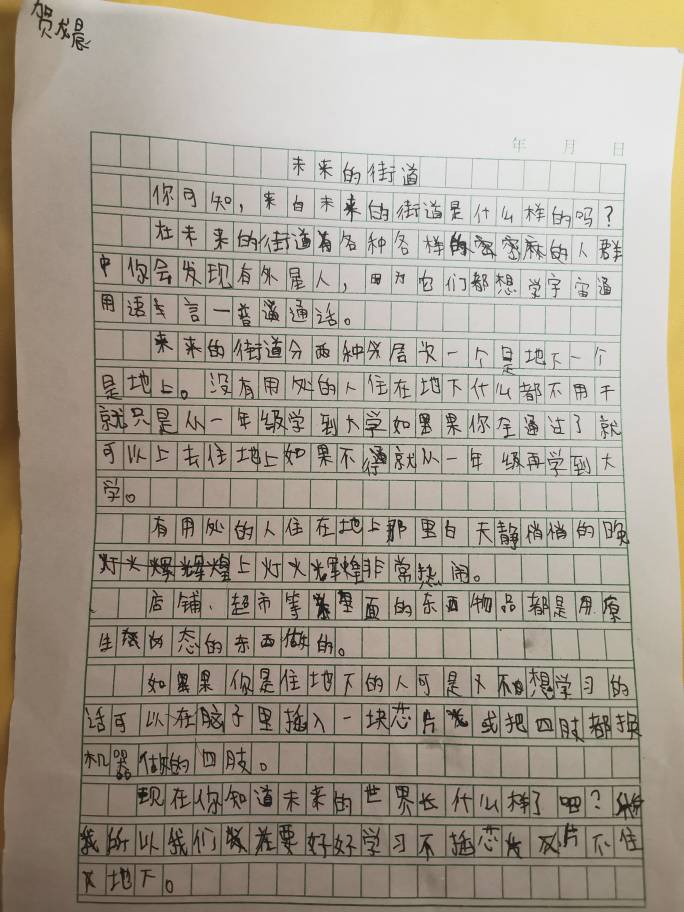 贺龙晨
年 月 日
未来的街道
你可知，来自未来的街道是什么样的吗？
在未来的街道有各种各样的密密麻的人群
中你会发现有外星人，因为它们都想学宇宙通
用语言一普通话。
未来的街道分两种层次一个是地下一个
是地上。没有用处的人住在地下什么都不用干
就只是从一年级学到大学如果你全通过了就
可以上去住地上如果不行就从一年级再学到大
学。
有用处的人住在地上那里白天静悄悄的晚
上灯火辉煌非常热闹。
店铺、超市等里面的东西物品都是用原
生态的东西做的。
如果你是住地下的人可是又不想学习的
话可以在脑子里插入一块芯片或把四肢都换
机器做的四肢。
现在你知道未来的世界长什么样了吧？
所以我们要好好学习不插芯片不住
地下。